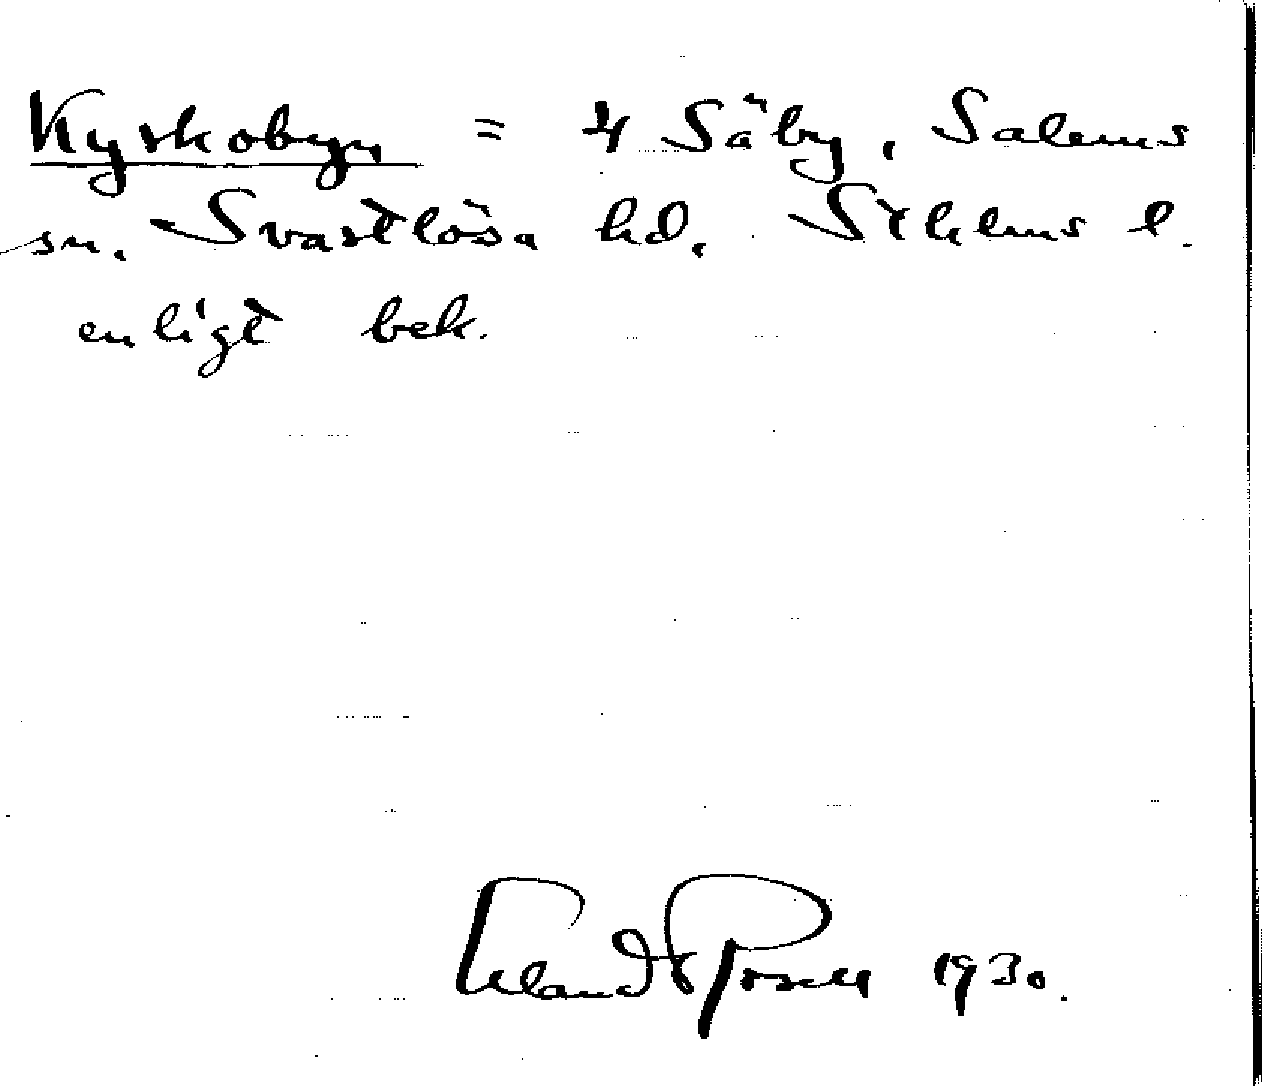 Kyrkobyn = 4 Säby, Salems
sn. Svartlösa hd. Sthlms l.
enligt bek.
Erland Rosell 1930.